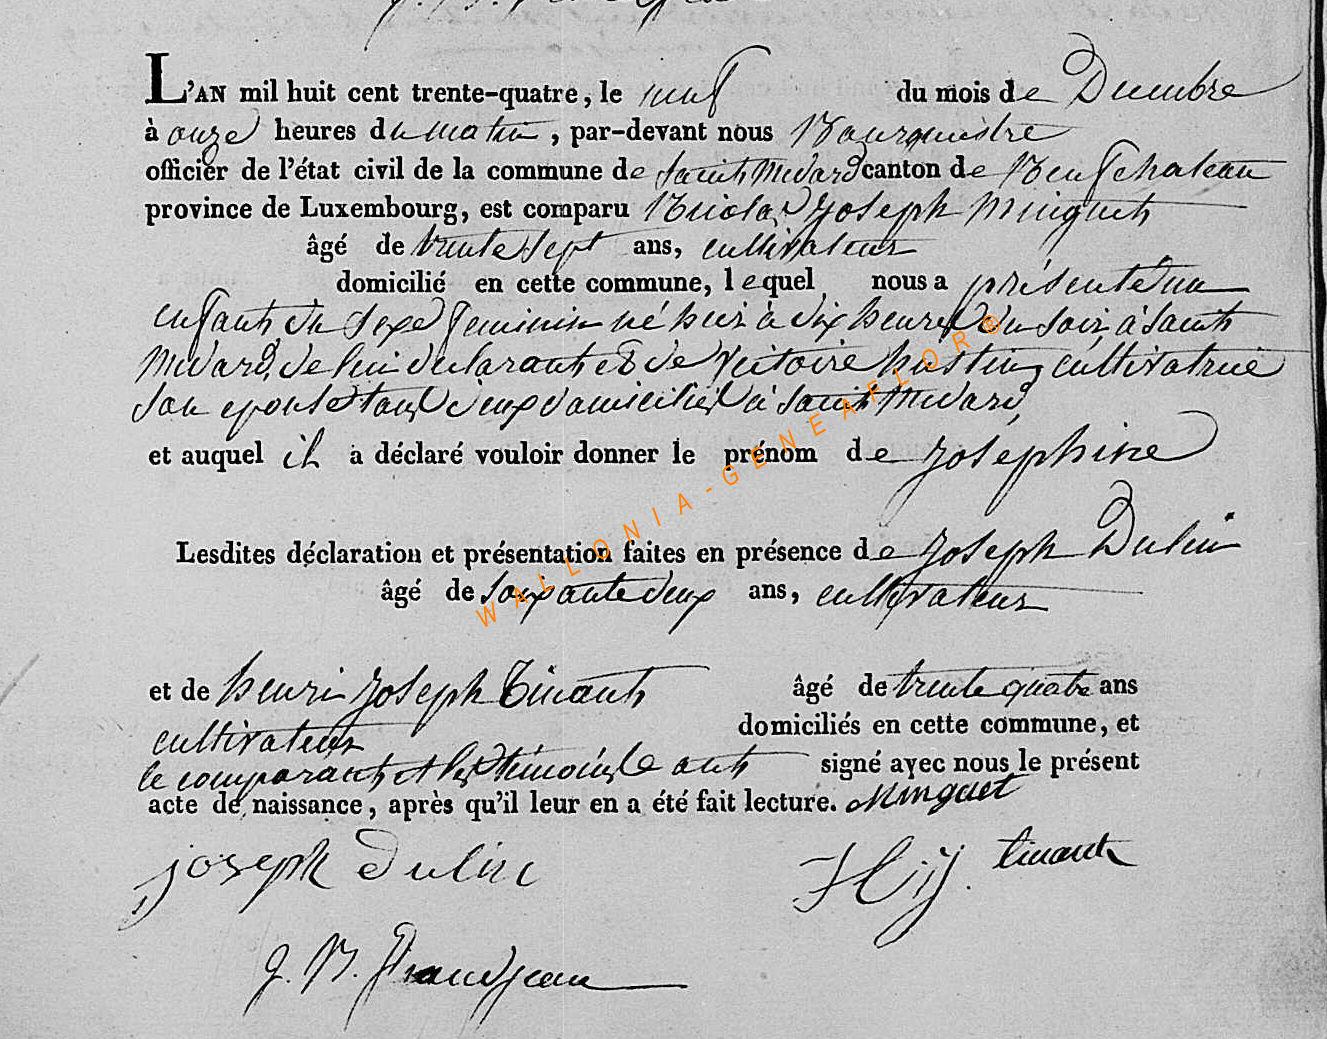 L'AN mil huit cent trente-quatre, le neuf du mois de Decembre
à onze heures du matin, par-devant nous Bourguestre
officier de l'état civil de la commune de Saint Medard canton de Neufchateau
province de Luxembourg, est comparu Nicolas Joseph Minguet
âgé de trente sept ans, cultivateur
domicilié en cette commune, lequel nous a présenté un
enfant du sexe feminin né hier à dix heures du soir à Saint
Medard, de lui declarant et de Victoire hustin cultivatrice
son epouse tous deux domiciliés à Saint Medard
et auquel il a déclaré vouloir donner le prénom de Joséphine
Lesdites déclaration et présentation faites en présence de Joseph Dulin
âgé de soixante deux ans, cultivateur
et de henri Joseph Tinant âgé de trente quatre ans
cultivateur domiciliés en cette commune, et
le comparant et les témoins ont signé avec nous le présent
acte de naissance, après qu'il leur en a été fait lecture. Minguet
joseph Dulin
H j. tinant
J. B. Grandjean
WALLONIA-GENEAFLOR®